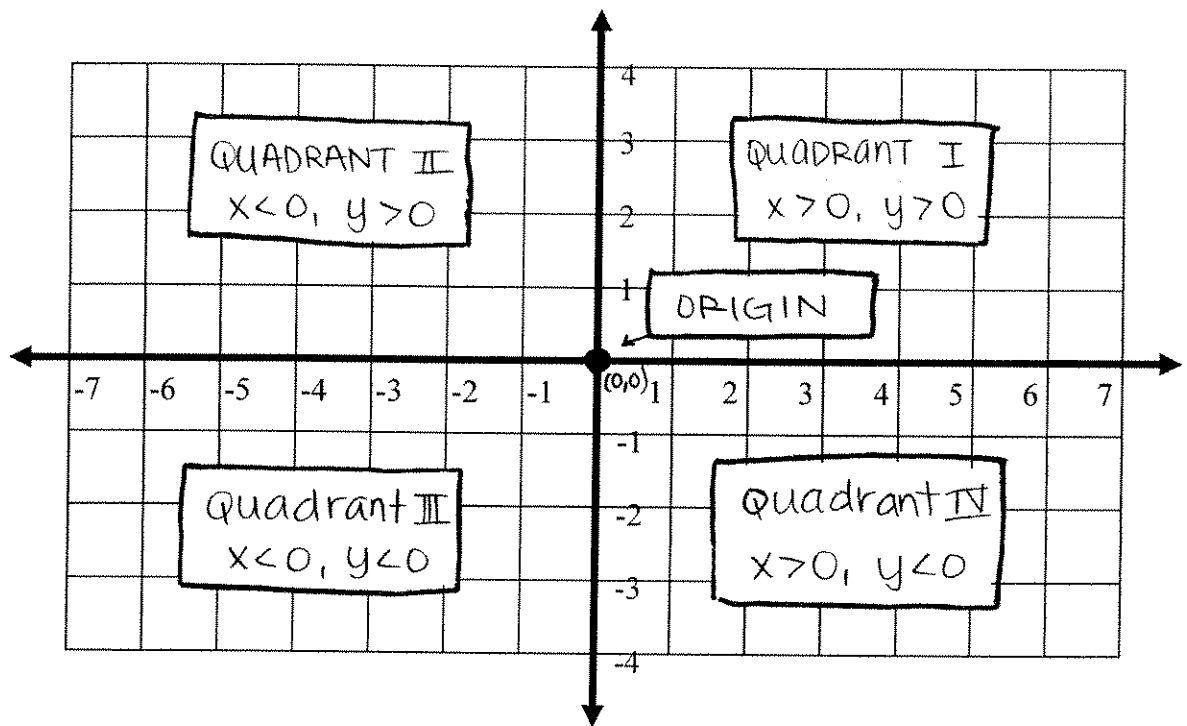 4
3
2
1
QUADRANT II
x<0, y>0
QUADRANT I
x>0, y>0
ORIGIN
-7 -6 -5 -4 -3 -2 -1 (0,0) 1 2 3 4 5 6 7
-1
-2
-3
-4
Quadrant III
x<0, y<0
Quadrant IV
x>0, y<0